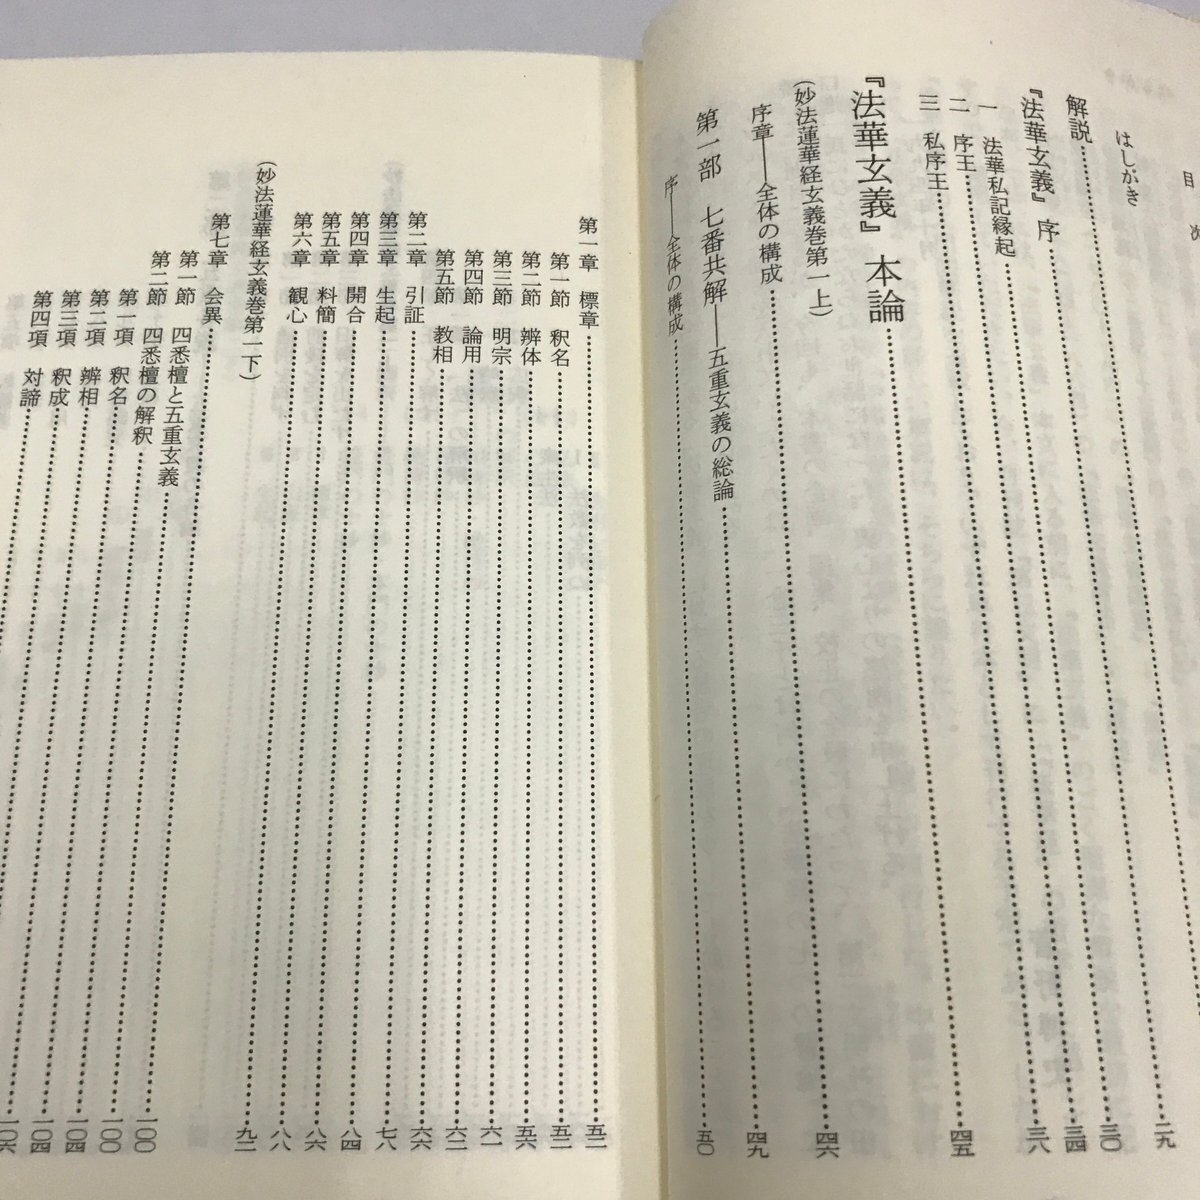 目次
はしがき
解説
『法華玄義』序 二九
一 法華私記縁起 三〇
二 序王 三四
三 私序王 三八
『法華玄義』本論 四五
(妙法蓮華経玄義巻第一上)
序章――全体の構成 四六
第一部 七番共解――五重玄義の総論 四九
序――全体の構成 五〇
第一章 標章 五二
第一節 釈名 五二
第二節 辨体 五六
第三節 明宗 六一
第四節 論用 六二
第五節 教相 六六
第二章 引証 七八
第三章 生起 八四
第四章 開合 八六
第五章 料簡 八八
第六章 観心 九二
(妙法蓮華経玄義巻第一下)
第七章 会異 一〇〇
第一節 四悉檀と五重玄義 一〇〇
第二節 四悉檀の解釈 一〇四
第一項 釈名 一〇四
第二項 辨相 一〇六
第三項 釈成
第四項 対諦